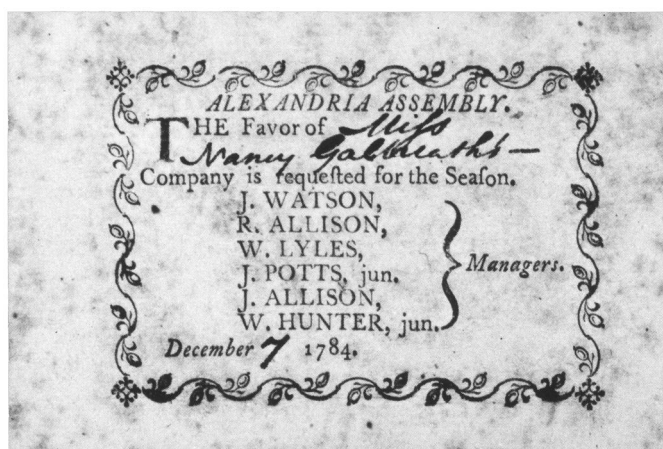 ALEXANDRIA ASSEMBLY.
THE Favor of Miſs
Nancy Galbreath's —
Company is requeſted for the Seaſon.
J. WATSON,
R. ALLISON,
W. LYLES,
J. POTTS, jun.
J. ALLISON,
W. HUNTER, jun.
Managers.
December 7 1784.